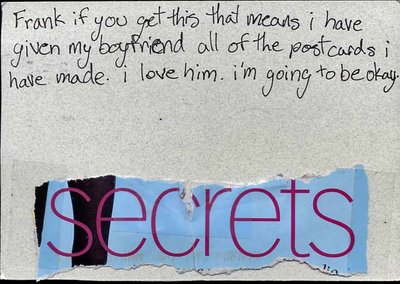 Frank if you get this that means i have
given my boyfriend all of the postcards i
have made. i love him. i'm going to be okay.
secrets